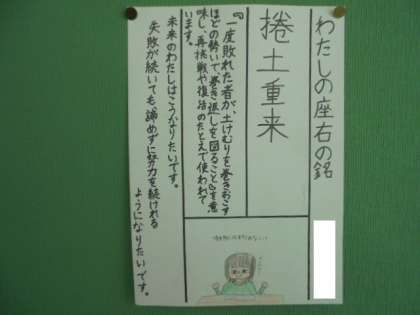 わたしの座右の銘
捲土重来
『一度敗れた者が土けむりを巻きおこす
ほどの勢いで巻き返しを図ること』を意
味し、再挑戦や復活のたとえで使われて
います。
未来のわたしはこうなりたいです。
失敗が続いても、諦めずに努力を続けれる
ようになりたいです。